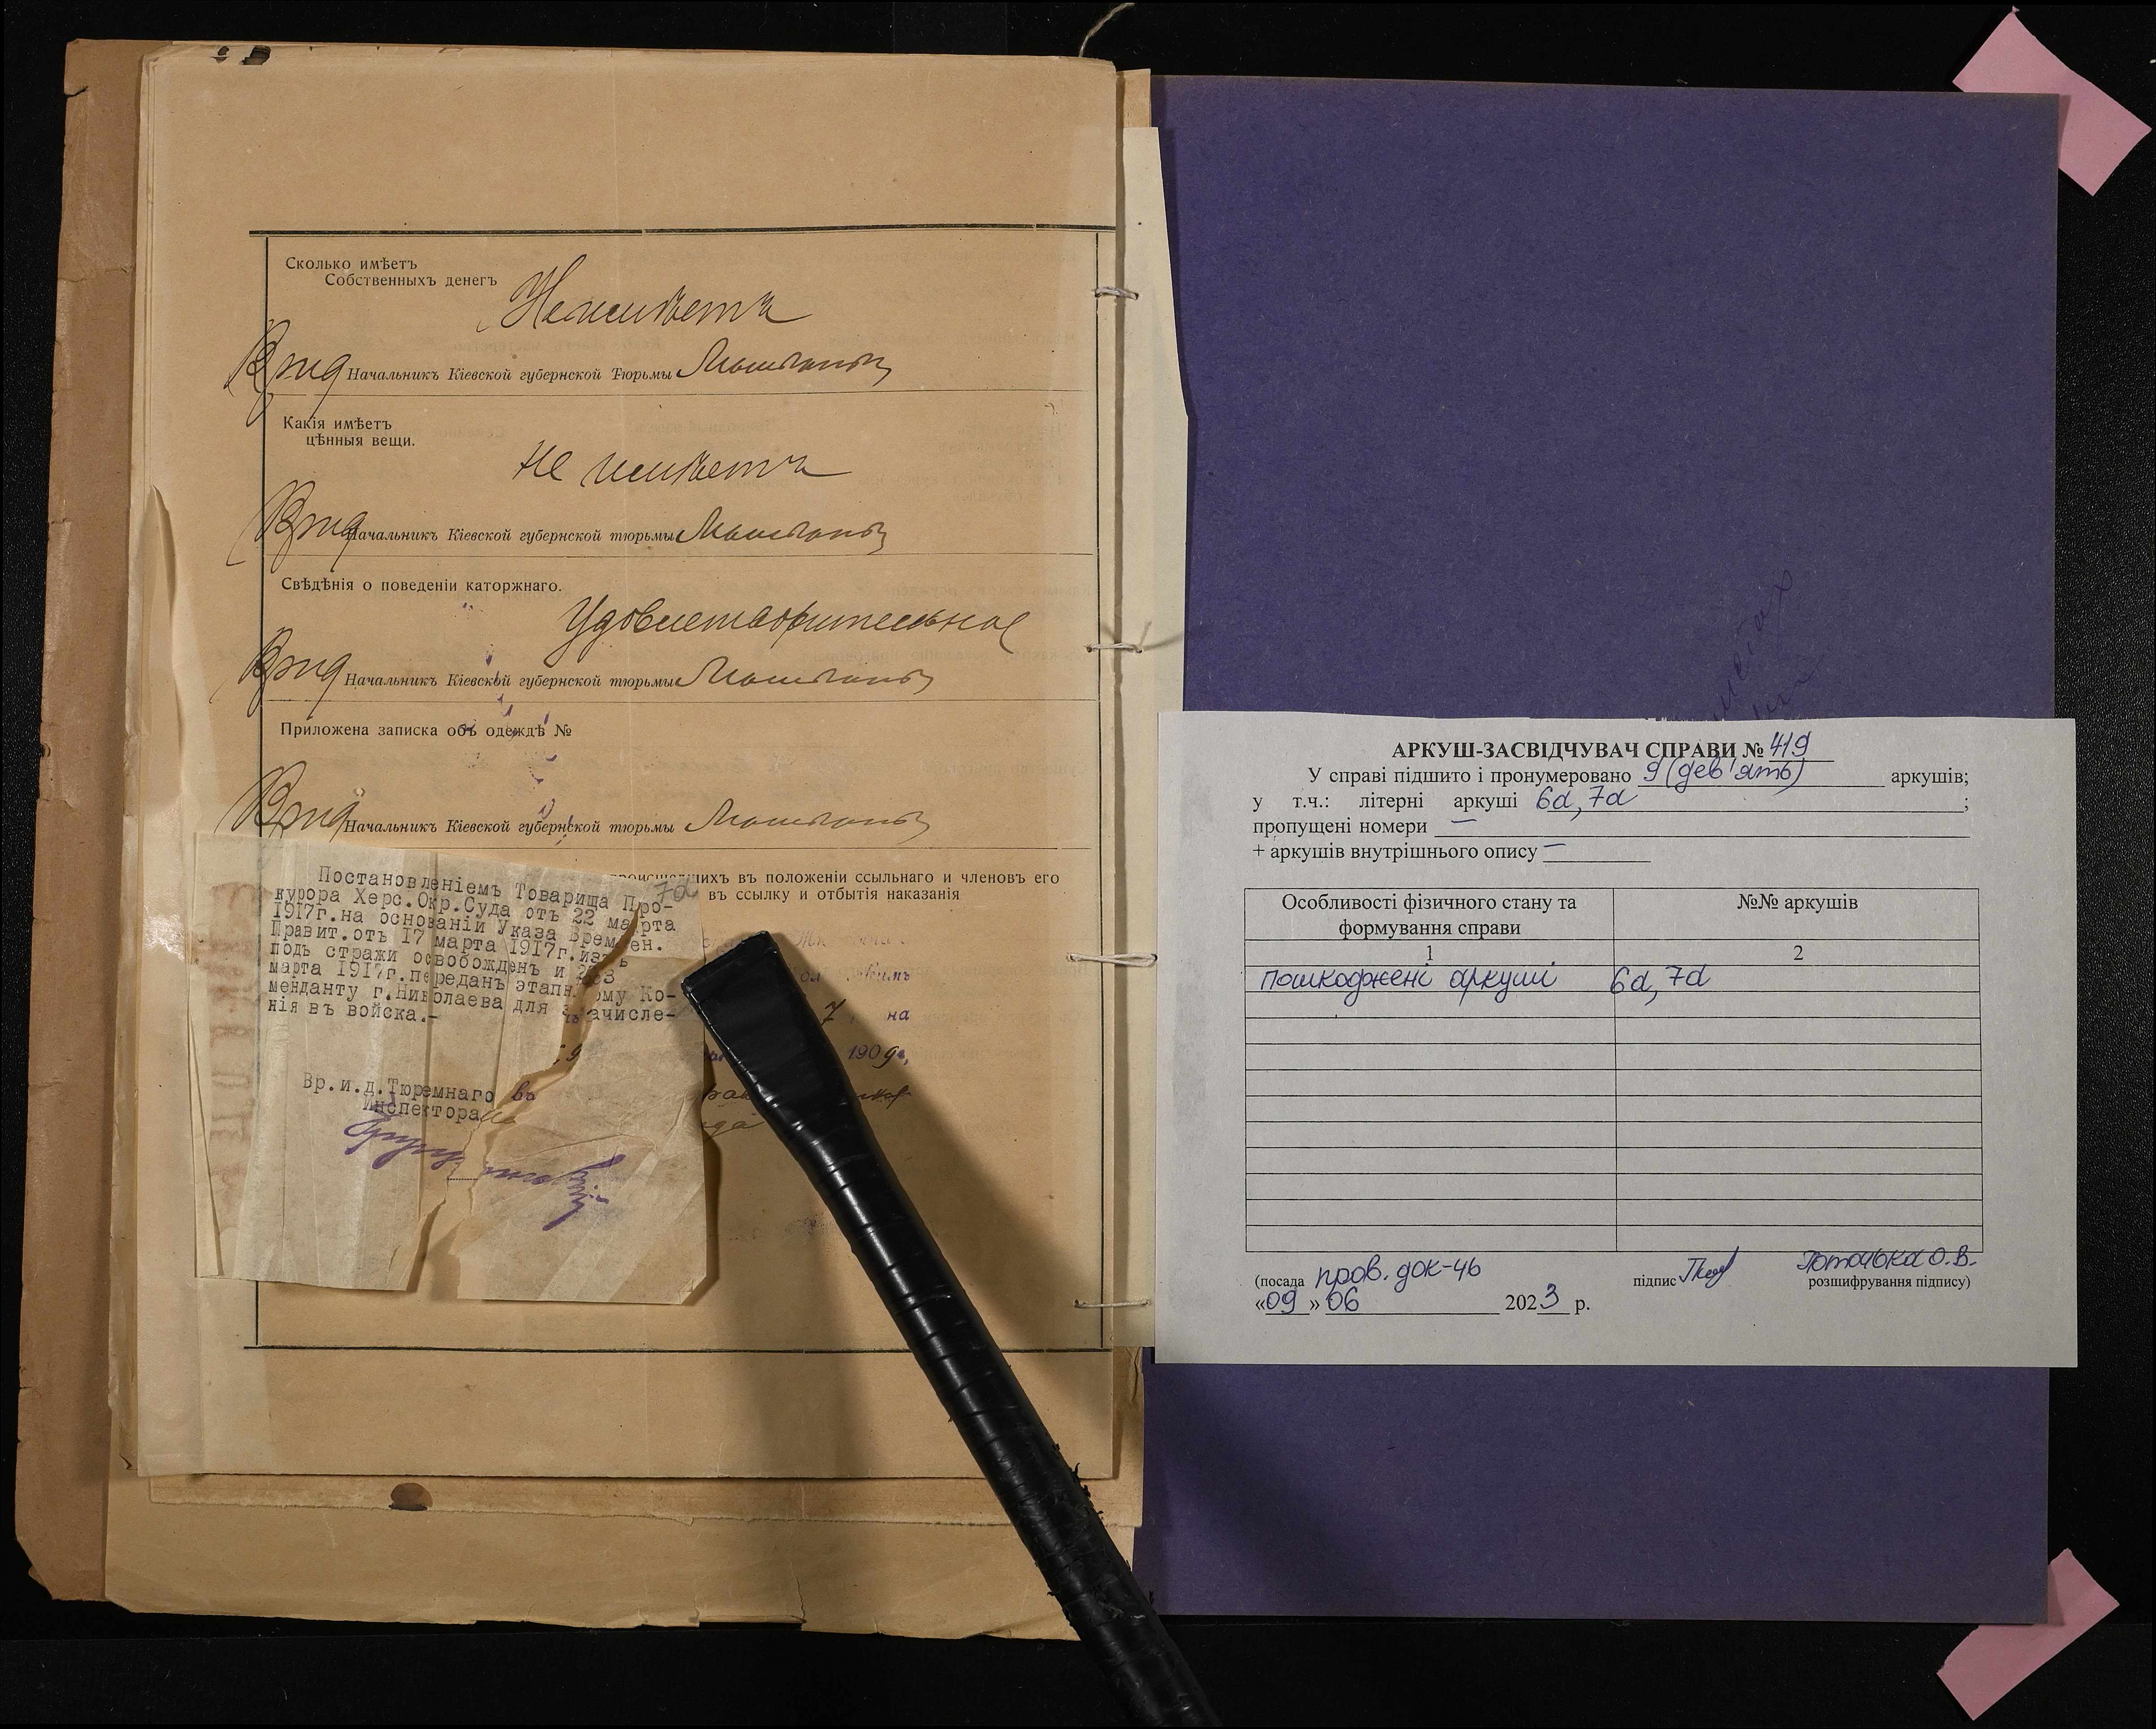 Сколько имѣетъ
Собственныхъ денегъ
Не имѣетъ
Врид Начальникъ Кіевской губернской Тюрьмы
Какія имѣетъ
цѣнныя вещи.
не имѣетъ
Врид Начальникъ Кіевской губернской тюрьмы
Свѣдѣнія о поведеніи каторжнаго.
Удовлетворительное
Врид Начальникъ Кіевской губернской тюрьмы
Приложена записка объ одеждѣ №
Врид Начальникъ Кіевской губернской тюрьмы
происшедшихъ въ положеніи ссыльнаго и членовъ его
въ ссылку и отбытія наказанія
7а
Постановленіемъ Товарища Про-
курора Херс.Окр.Суда отъ 22 марта
1917г.на основаніи Указа Времен.
Правит.отъ 17 марта 1917г.изъ
подъ стражи освобожденъ и 23
марта 1917г.переданъ этапному Ко-
менданту г.Николаева для зачисле-
нія въ войска.-
7 на
190 9.,
Вр.и.д.Тюремнаго
Инспектора
АРКУШ-ЗАСВІДЧУВАЧ СПРАВИ № 419
У справі підшито і пронумеровано 9 (дев'ять) аркушів;
у т.ч.: літерні аркуші 6а, 7а ;
пропущені номери —
+ аркушів внутрішнього опису —
Особливості фізичного стану та формування справи №№ аркушів
1 2
пошкоджені аркуші 6а, 7а
(посада пров. док-чь підпис О.В. розшифрування підпису)
«09» 06 2023 р.